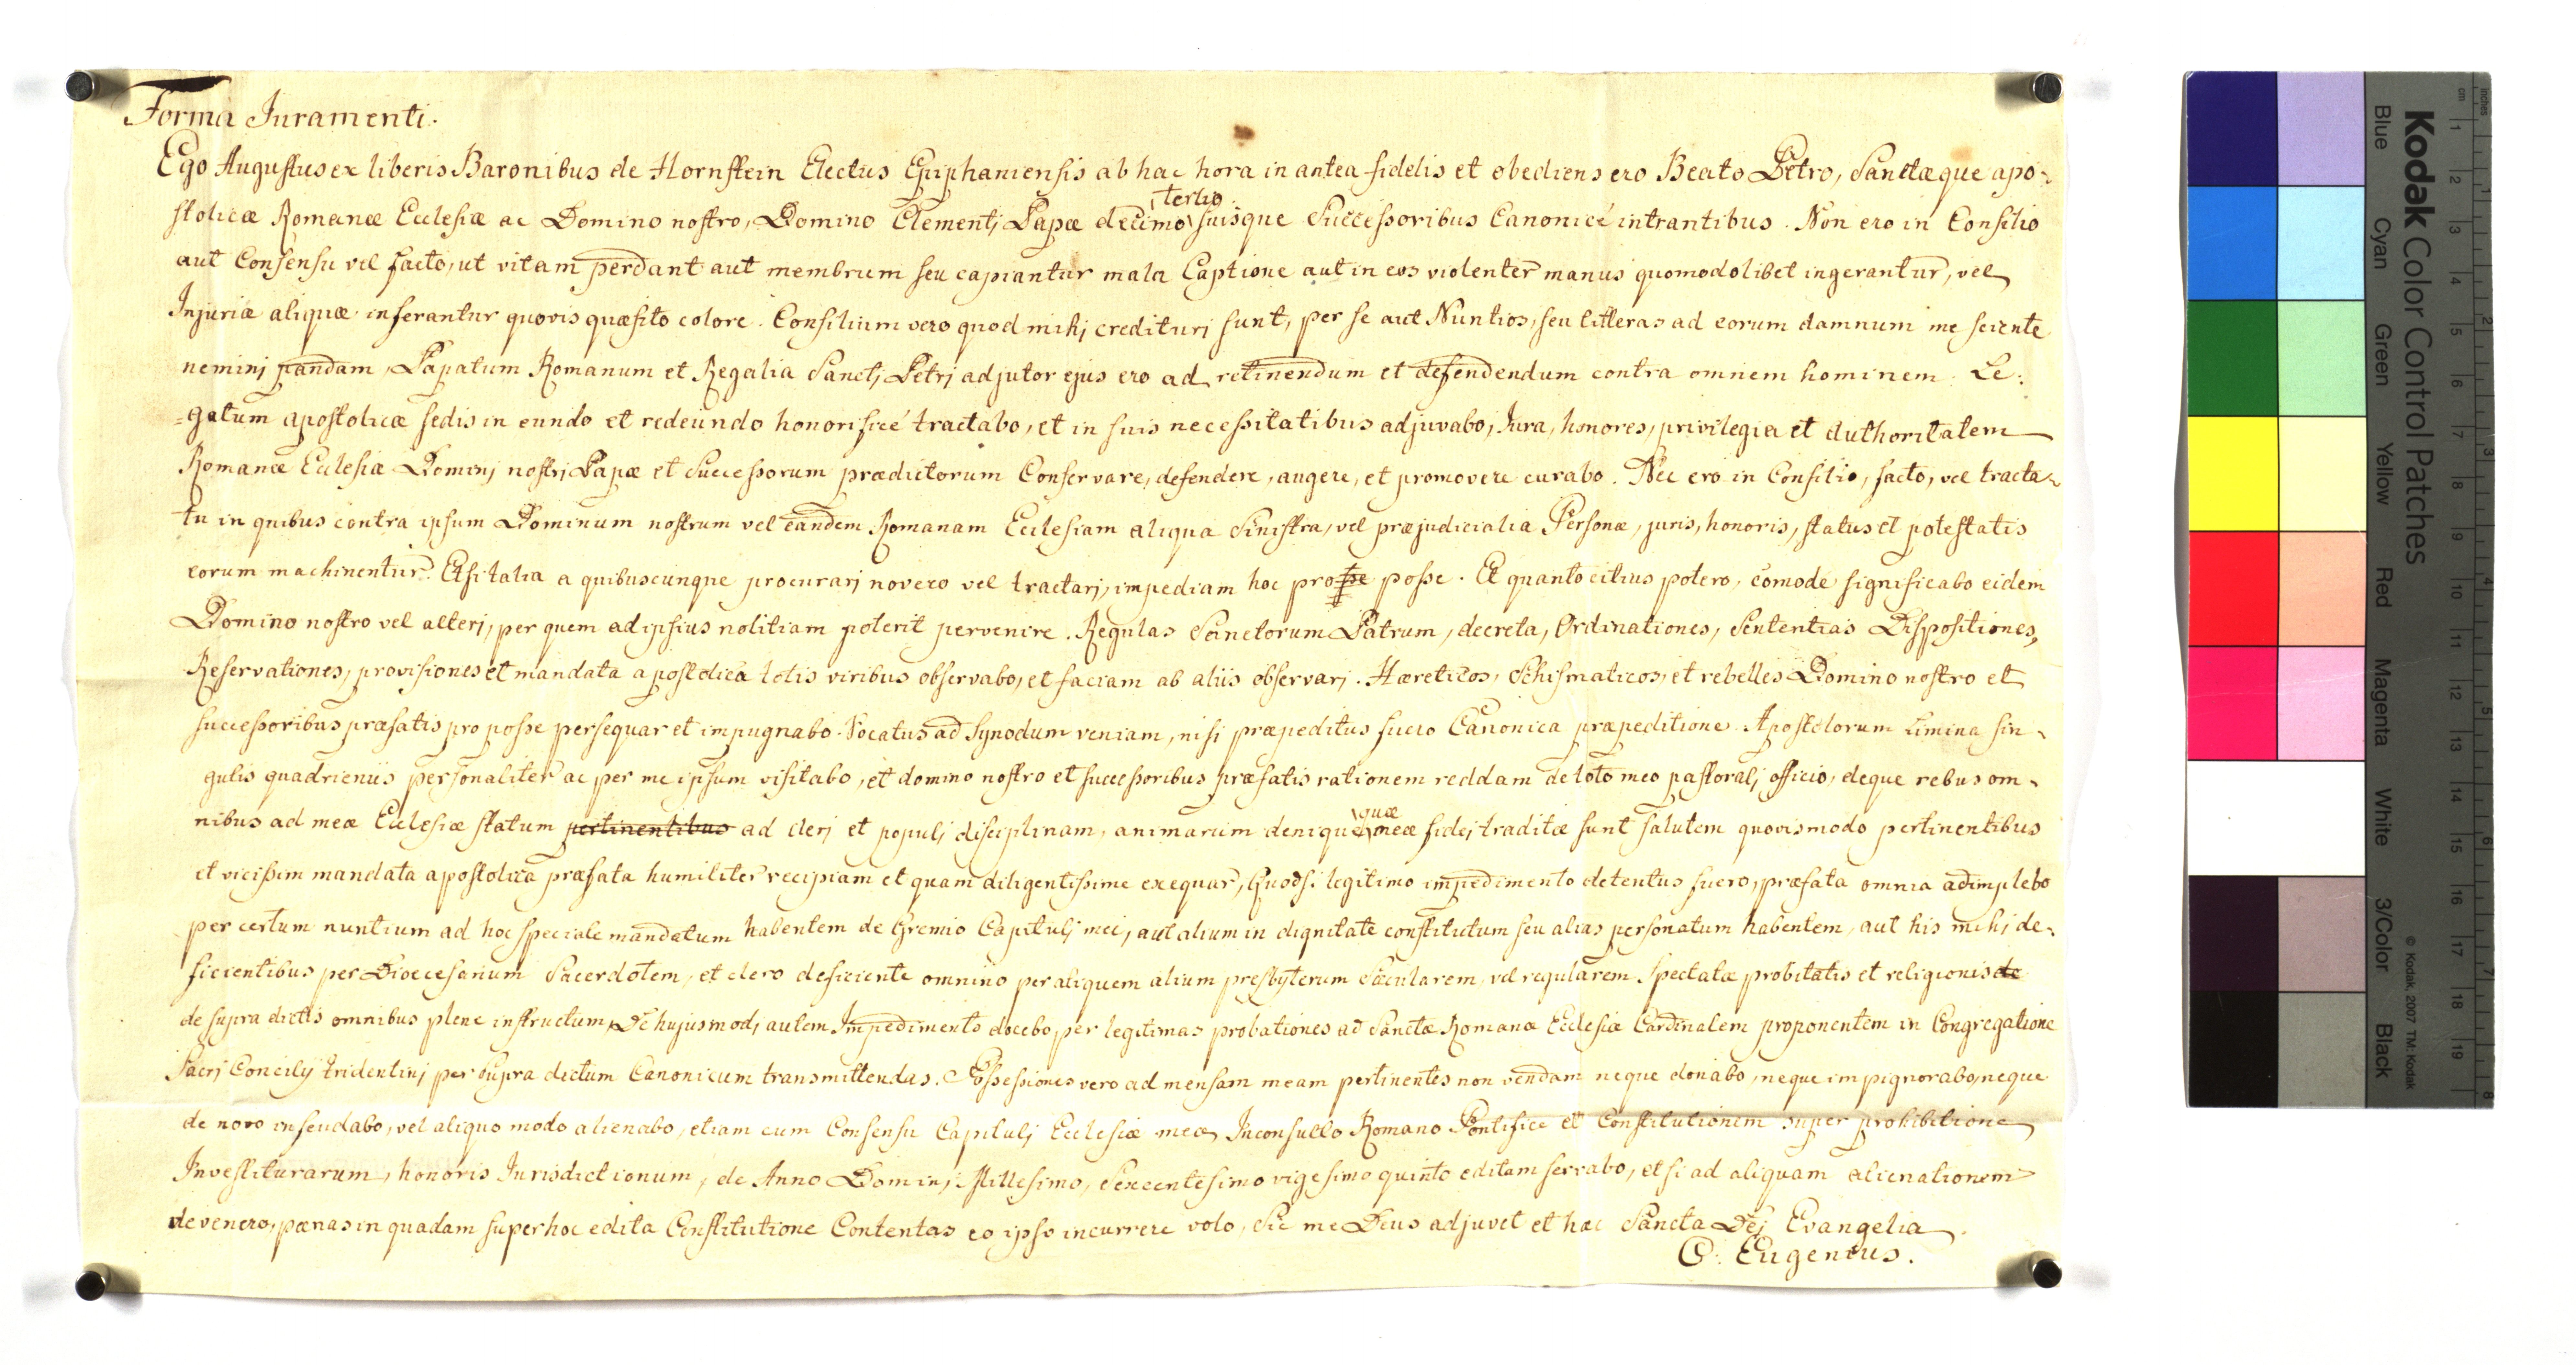 Forma Juramenti.
Ego Augustus ex liberis Baronibus de Hornstein Electus Epiphaniensis ab hac hora in antea fidelis et obediens ero Beato Petro, Sanctæque apo-
stolicæ Romanæ Ecclesiæ ac Domino nostro, Domino Clementj Papæ decimo tertio suisque Successoribus Canonicé intrantibus. Non ero in Consilio
aut Consensu vel facto, ut vitam perdant aut membrum seu capiantur mala Captione aut in eos violenter manus quomodolibet ingerantur, vel
Injuriæ aliquæ inferantur quovis quæsito colore. Consilium vero quod mihj credituri sunt, per se aut Nuntios, seu litteras ad eorum damnum me sciente
neminj pandam, Papatum Romanum et Regalia Sanctj Petrj adjutor ejus ero ad retinendum et defendendum contra omnem hominem. Le:
=gatum apostolicæ sedis in eundo et redeundo honorificé tractabo, et in suis necessitatibus adjuvabo, Jura, honores, privilegia et Authoritatem
Romanæ Ecclesiæ Dominj nostrj Papæ et Successorum prædictorum Conservare, defendere, augere, et promovere curabo. Nec ero in Consilio, facto, vel tracta-
tu in quibus contra ipsum Dominum nostrum vel eandem Romanam Ecclesiam aliqua Sinistra, vel præjudicialia Personæ, juris, honoris, status et potestatis
eorum machinentur. Et si talia a quibuscunque procurarj novero vel tractarj, impediam hoc pro posse. Et quanto citius potero, comode significabo eidem
Domino nostro vel alterj, per quem ad ipsius notitiam poterit pervenire. Regulas Sanctorum Patrum, decreta, Ordinationes, Sententias Dispositiones,
Reservationes, provisiones et mandata apostolica totis viribus observabo, et faciam ab aliis observarj. Hæreticos, Schismaticos, et rebelles Domino nostro et
successoribus præfatis pro posse persequar et impugnabo. Vocatus ad Synodum veniam, nisi præpeditus fuero Canonica præpeditione. Apostolorum Limina sin-
gulis quadrieniis personaliter ac per me ipsum visitabo, et domino nostro et successoribus præfatis rationem reddam de toto meo pastoralj officio, deque rebus om-
nibus ad meæ Ecclesiæ statum pertinentibus ad clerj et populj disciplinam, animarum denique quæ meæ fidej traditæ sunt salutem quovismodo pertinentibus
et vicissim mandata apostolica præfata humiliter recipiam et quam diligentissime exequar, Quodsi legitimo impedimento detentus fuero, præfata omnia adimplebo
per certum nuntium ad hoc speciale mandatum habentem de Gremio Capitulj mei, aut alium in dignitate constitutum seu alias personatum habentem, aut his mihj de-
ficientibus per Dioecesanum Sacerdotem, et clero deficiente omnino per aliquem alium presbyterum Sæcularem vel regularem Spectatæ probitatis et religionis de
de supra dictis omnibus plene instructum, De hujusmodj autem Impedimento docebo per legitimas probationes ad Sanctæ Romanæ Ecclesiæ Cardinalem proponentem in Congregatione
Sacrj Concilij tridentinj per supra dictum Canonicum transmittendas. Possessiones vero ad mensam meam pertinentes non vendam neque donabo, neque impignorabo, neque
de novo infeudabo, vel aliquo modo alienabo, etiam cum Consensu Capitulj Ecclesiæ meæ, Inconsulto Romano Pontifice et Constitutionem super prohibitione
Investiturarum, honoris Jurisdictionum, de Anno Dominj Millesimo, Sexcentesimo vigesimo quinto editam servabo, et si ad aliquam alienationem
devenero, pænas in quadam super hoc edita Constitutione Contentas eo ipso incurrere volo, Sic me Deus adjuvet et hæc Sancta Dej Evangelia.
C. Eugenius.
Kodak Color Control Patches
Blue Cyan Green Yellow Red Magenta White 3/Color Black
© Kodak, 2007 TM: Kodak
inches 1 2 3 4 5 6 7 8
cm 1 2 3 4 5 6 7 8 9 10 11 12 13 14 15 16 17 18 19